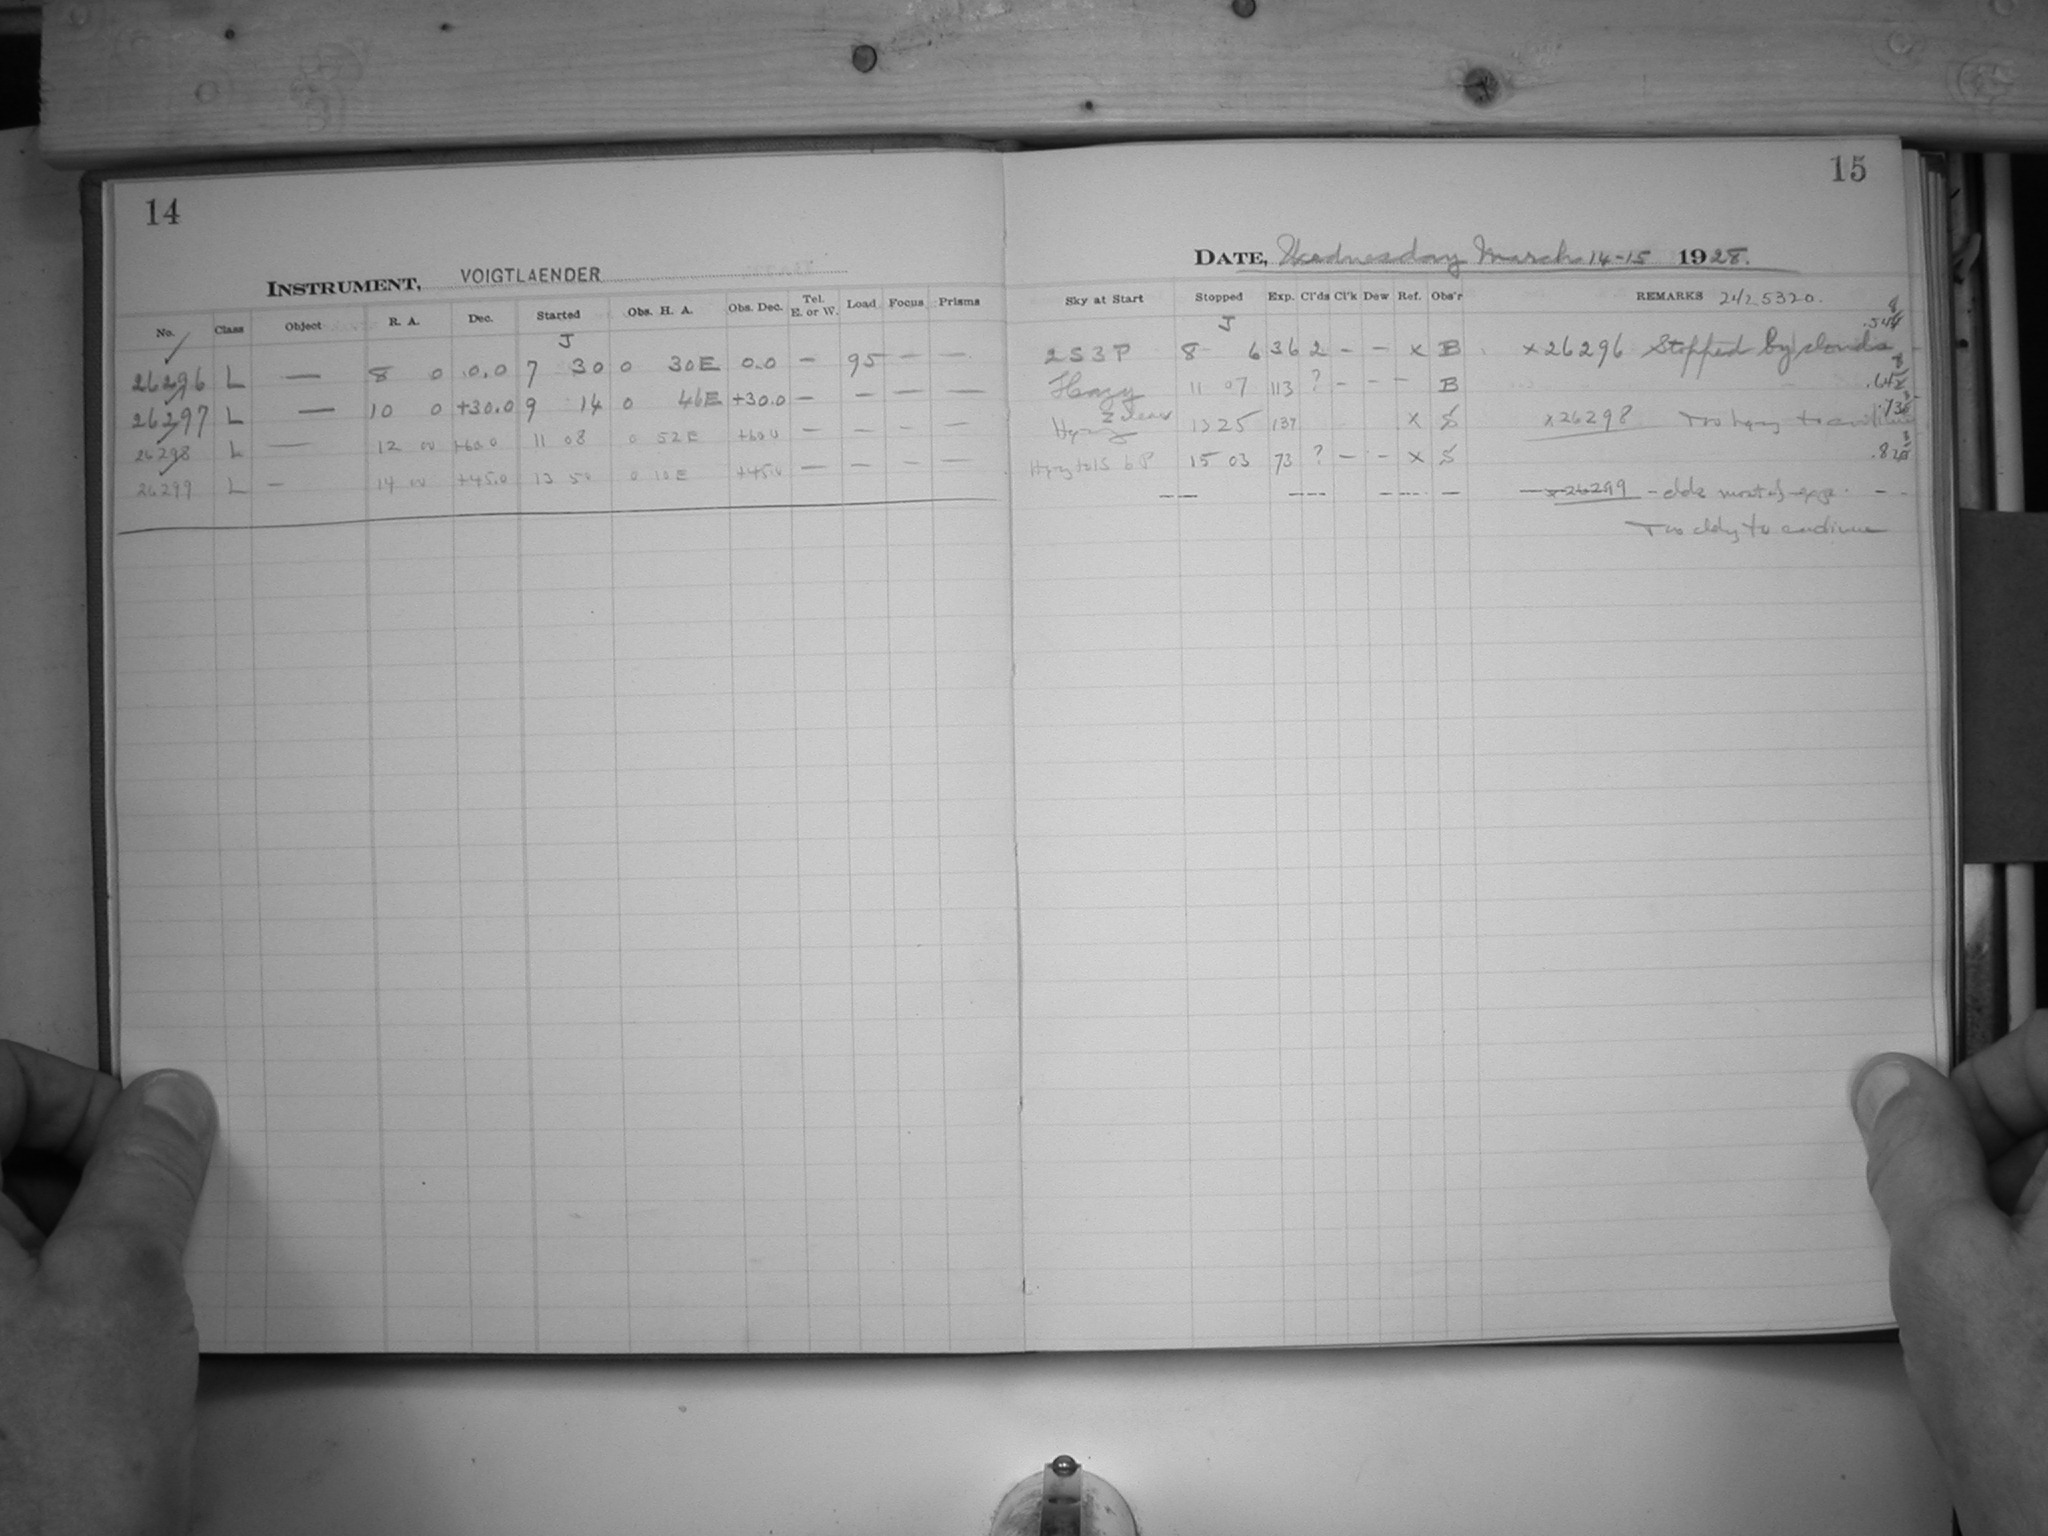 14
INSTRUMENT, VOIGTLAENDER
No. Class Object R. A. Dec. Started Obs. H. A. Obs. Dec. Tel. E. or W. Load Focus Prisms
J
26296 L — 8 0 0.0 7 30 0 30E 0.0 — 95 — —
26297 L — 10 0 +30.0 9 14 0 46E +30.0 — — — —
26298 L — 12 00 +60.0 11 08 0 52E +60.0 — — — —
26299 L — 14 00 +45.0 13 50 0 10E +45.0 — — — —
15
DATE, Wednesday March 14-15 1928.
Sky at Start Stopped Exp. Cl'ds Cl'k Dew Ref. Obs'r REMARKS 2425320.
J
2S3P 8 6 36 2 — — x B x26296 Stopped by clouds
Hazy 11 07 113 ? — — — B
Hazy 13 25 137 x S x26298 Too hazy to continue
Hazy to 1S 6P 15 03 73 ? — — x S
x26299 - clds most of
Too cldy to continue